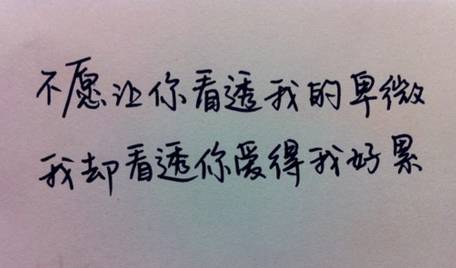 不愿让你看透我的卑微
我却看透你爱得我好累